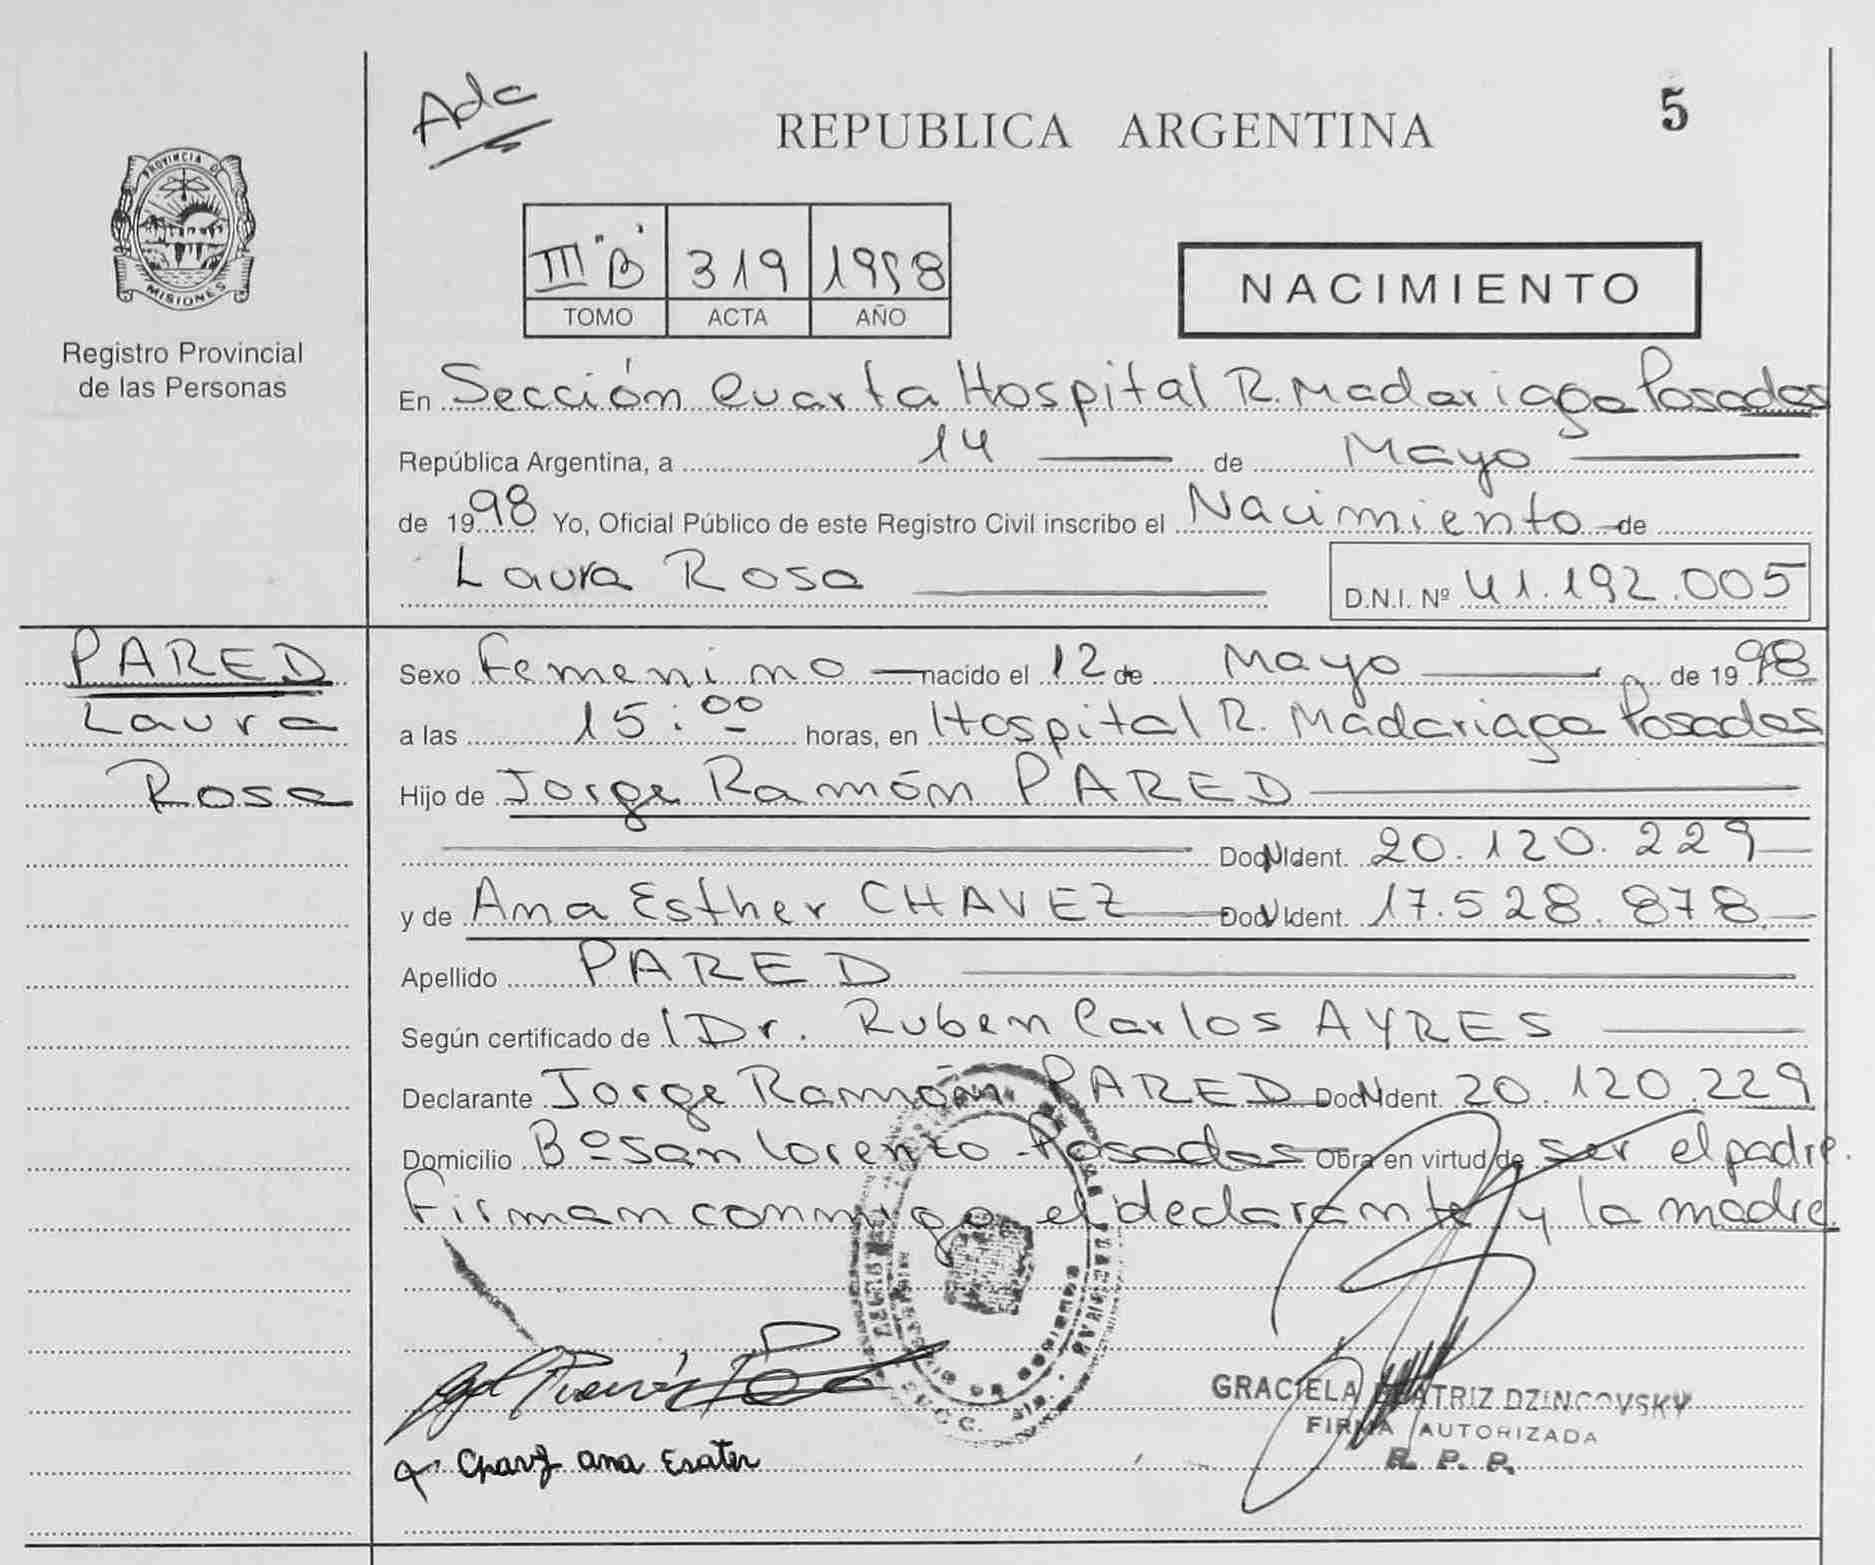 Ada
REPUBLICA ARGENTINA
5
PROVINCIA DE
MISIONES
Registro Provincial
de las Personas
III "B" 319 1998
TOMO ACTA AÑO
NACIMIENTO
En Sección Cuarta Hospital R. Madariaga Posadas
República Argentina, a 14 de Mayo
de 1998 Yo, Oficial Público de este Registro Civil inscribo el Nacimiento de
Laura Rosa D.N.I. Nº 41.192.005
PARED
Laura
Rosa
Sexo Femenino nacido el 12 de Mayo de 1998
a las 15:00 horas, en Hospital R. Madariaga Posadas
Hijo de Jorge Ramón PARED
Doc N Ident. 20.120.229
y de Ana Esther CHAVEZ Doc N Ident. 17.528.878
Apellido PARED
Según certificado de l Dr. Ruben Carlos AYRES
Declarante Jorge Ramón PARED Doc N Ident. 20.120.229
Domicilio Bº San Lorenzo Posadas Obra en virtud de ser el padre.
Firman conmigo el declarante y la madre
GRACIELA BEATRIZ DZINCOVSKY
FIRMA AUTORIZADA
R. P. P.
Chavez ana Esater